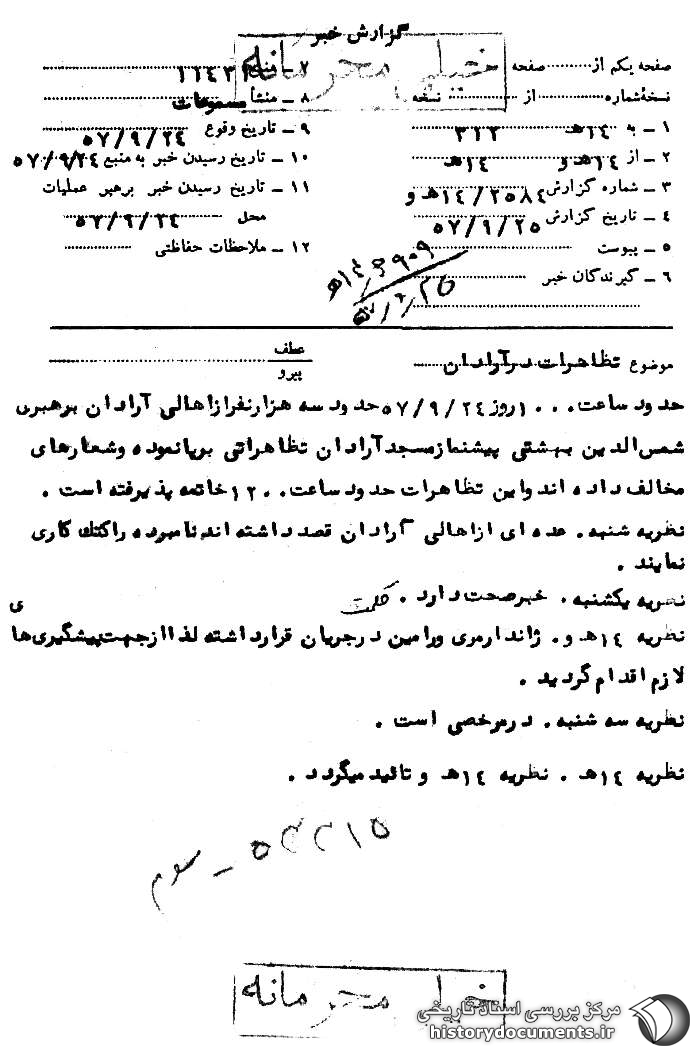 گزارش خبر
خیلی محرمانه
صفحه یکم از صفحه
نسخهٔ شماره از نسخه
۱ ــ به ۱۴هـ ۳۱۲
۲ ــ از ۱۴هـ و ۱۴هـ
۳ ــ شماره گزارش ۱۴/۲۵۸۴هـ و
۴ ــ تاریخ گزارش ۵۷/۹/۲۵
۵ ــ پیوست
۶ ــ گیرندگان خبر
۷ ــ منبع
۸ ــ منشأ مسموعات
۹ ــ تاریخ وقوع ۵۷/۹/۲۴
۱۰ ــ تاریخ رسیدن خبر به منبع ۵۷/۹/۲۴
۱۱ ــ تاریخ رسیدن خبر برهبر عملیات
محل ۵۷/۹/۲۴
۱۲ ــ ملاحظات حفاظتی
موضوع تظاهرات در آرادان
عطف
پیرو
حدود ساعت ۱۰۰۰ روز ۵۷/۹/۲۴ حدود سه هزار نفر از اهالی آرادان برهبری
شمس‌الدین بهشتی پیشنماز مسجد آرادان تظاهراتی برپا نموده و شعارهای
مخالف داده اند و این تظاهرات حدود ساعت ۱۲۰۰ خاتمه پذیرفته است .
نظریه شنبه. عده ای از اهالی آرادان قصد داشته اند نامبرده را کتک کاری
نمایند .
نظریه یکشنبه. خبر صحت دارد .
نظریه ۱۴هـ و. ژاندارمری ورامین در جریان قرار داشته لذا از جهت پیشگیری‌های
لازم اقدام گردید .
نظریه سه شنبه. در مرخصی است .
نظریه ۱۴هـ . نظریه ۱۴هـ و تائید میگردد .
خیلی محرمانه
مرکز بررسی اسناد تاریخی
historydocuments.ir